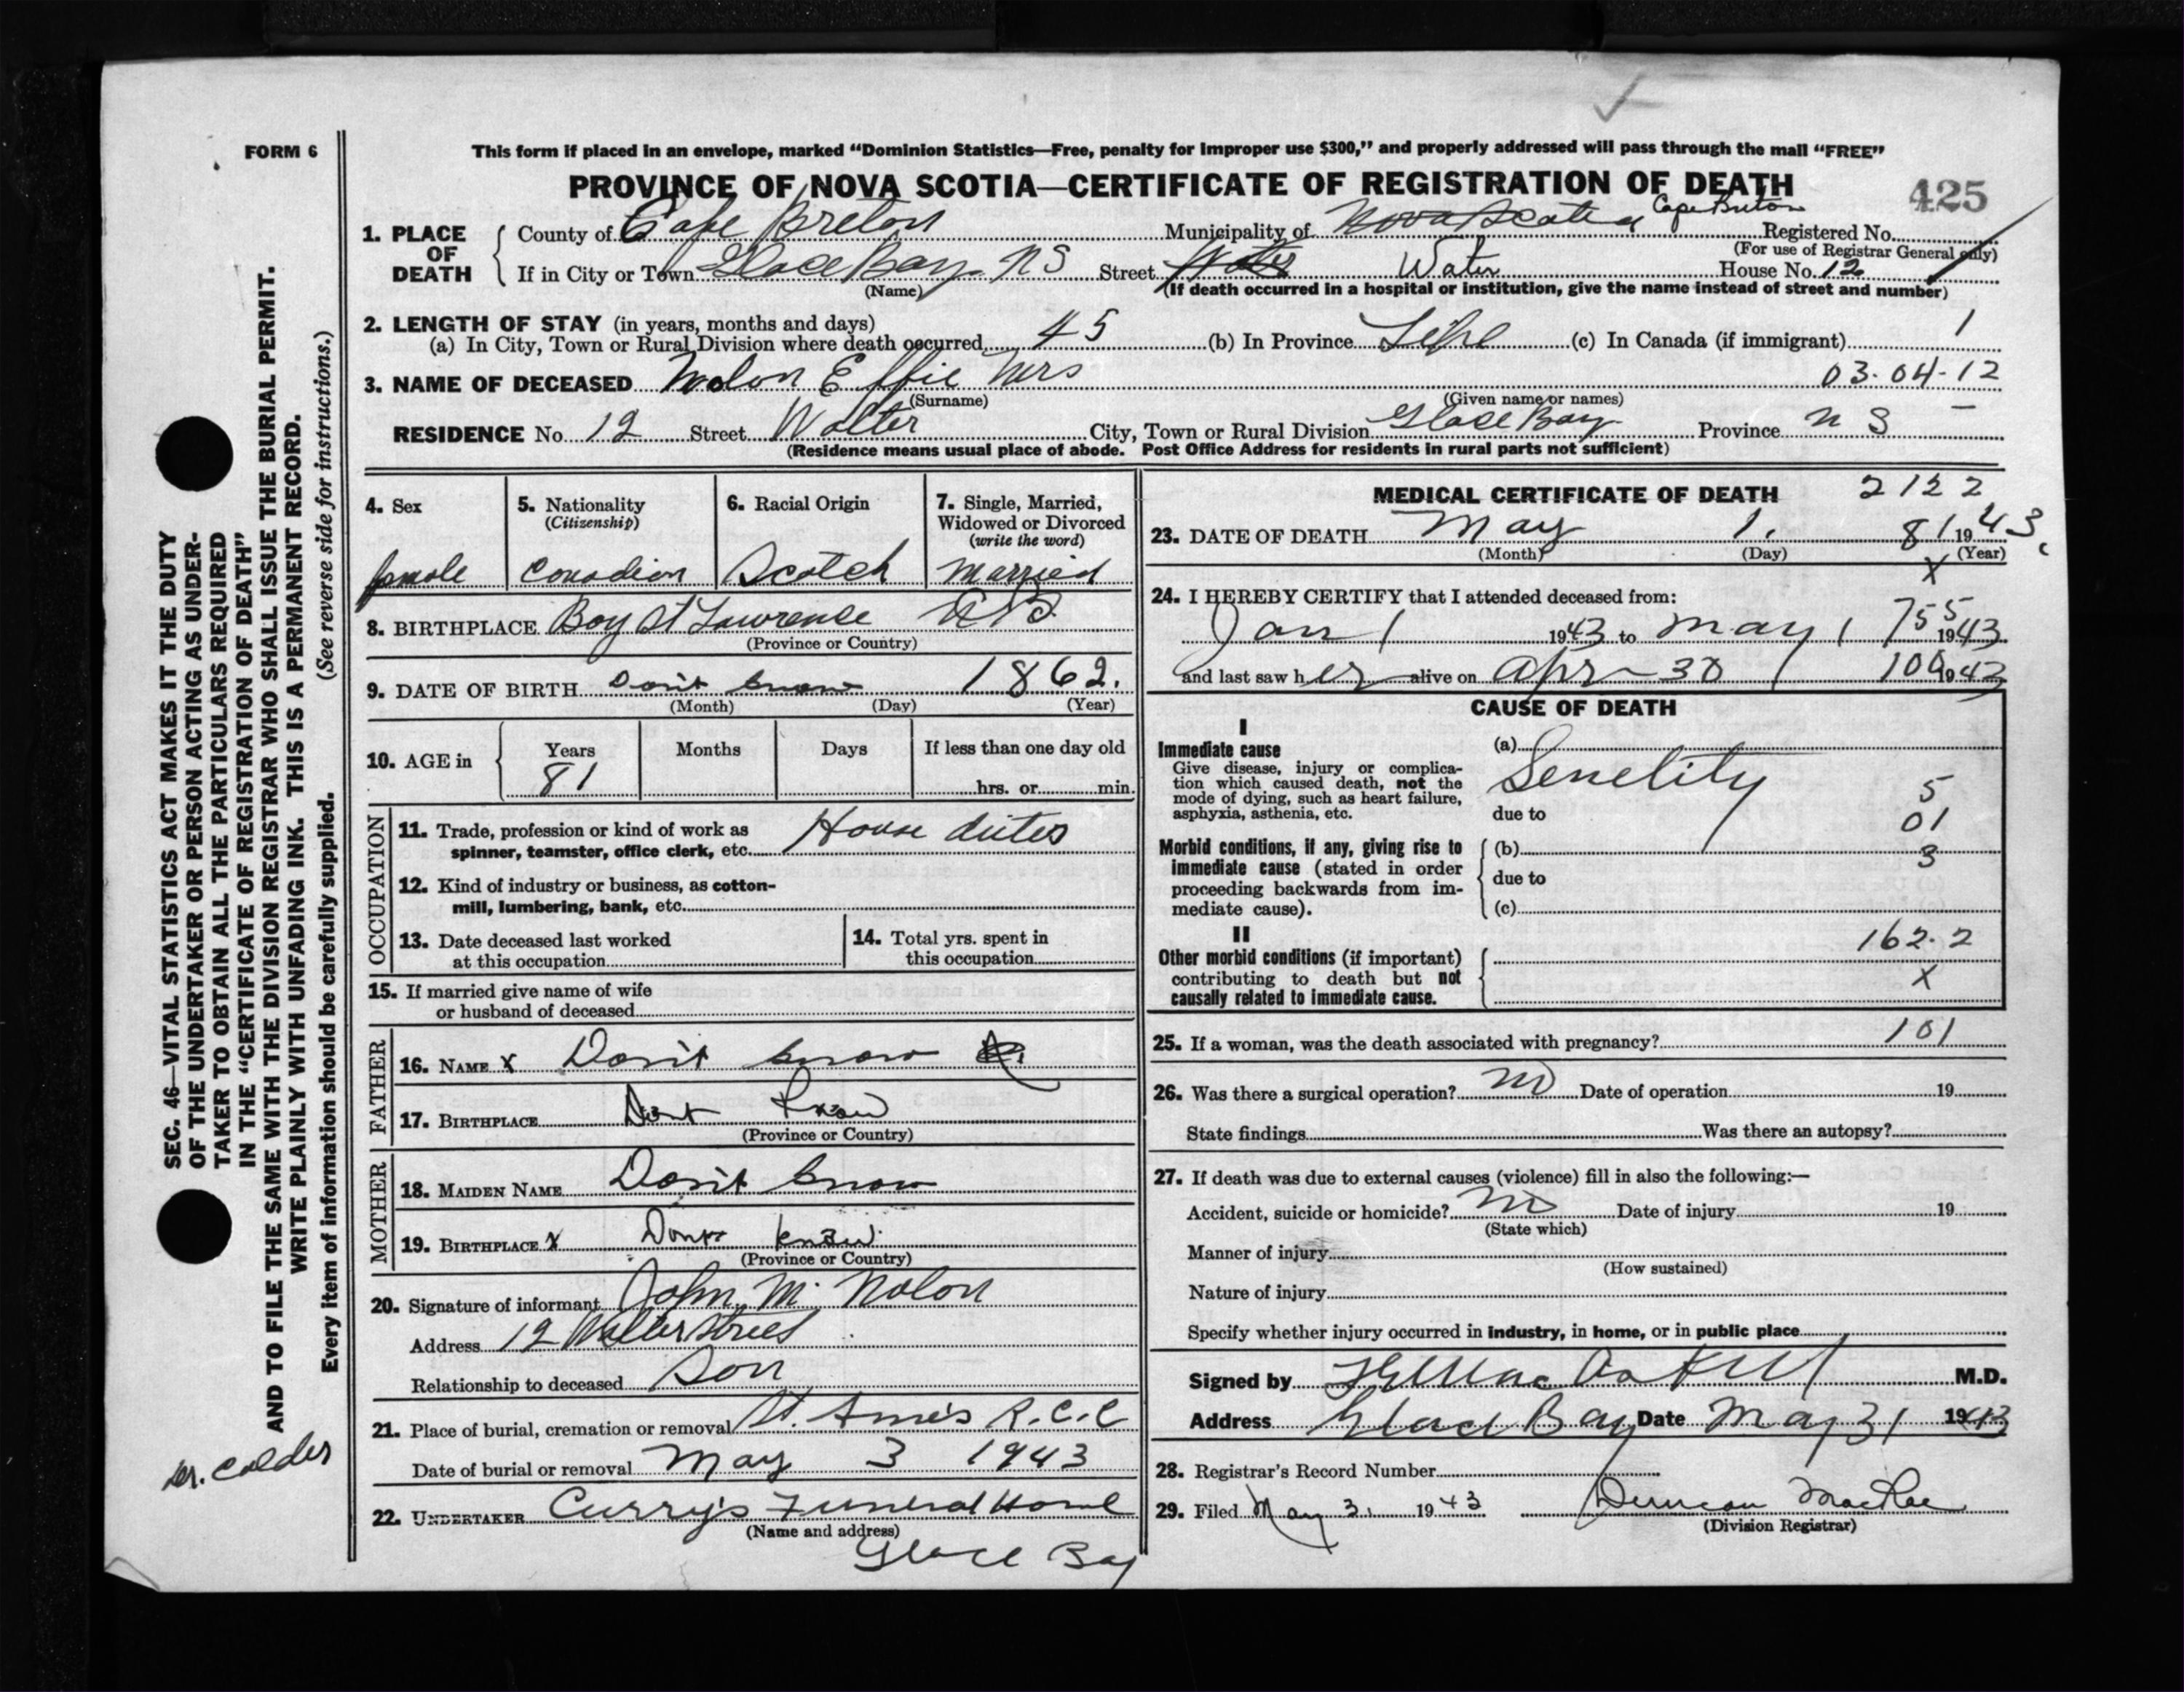 FORM 6
This form if placed in an envelope, marked “Dominion Statistics—Free, penalty for improper use $300,” and properly addressed will pass through the mail “FREE”
PROVINCE OF NOVA SCOTIA—CERTIFICATE OF REGISTRATION OF DEATH
425
1. PLACE OF DEATH
County of Cape Breton Municipality of Nova Scotia Cape Breton Registered No.
(For use of Registrar General only)
If in City or Town Glace Bay NS Street Water House No. 12
(Name) (If death occurred in a hospital or institution, give the name instead of street and number)
2. LENGTH OF STAY (in years, months and days)
(a) In City, Town or Rural Division where death occurred 45 (b) In Province Life (c) In Canada (if immigrant) 1
3. NAME OF DECEASED Nolon Effie Mrs 03-04-12
(Surname) (Given name or names)
RESIDENCE No. 12 Street Walter City, Town or Rural Division Glace Bay Province N S
(Residence means usual place of abode. Post Office Address for residents in rural parts not sufficient)
4. Sex female
5. Nationality (Citizenship) Conadion
6. Racial Origin Scotch
7. Single, Married, Widowed or Divorced (write the word) Married
8. BIRTHPLACE Boy St Lawrense C B.
(Province or Country)
9. DATE OF BIRTH Don't know 1862.
(Month) (Day) (Year)
10. AGE in Years 81 Months Days If less than one day old
hrs. or min.
OCCUPATION
11. Trade, profession or kind of work as
spinner, teamster, office clerk, etc. House duties
12. Kind of industry or business, as cotton-
mill, lumbering, bank, etc.
13. Date deceased last worked
at this occupation
14. Total yrs. spent in
this occupation
15. If married give name of wife
or husband of deceased
FATHER
16. NAME X Don't know
17. BIRTHPLACE Dont Know
(Province or Country)
MOTHER
18. MAIDEN NAME Don't know
19. BIRTHPLACE X Dont know
(Province or Country)
20. Signature of informant John M. Nolon
Address 12 Walter Street
Relationship to deceased Son
21. Place of burial, cremation or removal St. Anne's R.C.C
Date of burial or removal May 3 1943
22. UNDERTAKER Curry's Funeral Home
(Name and address)
Glace Bay
MEDICAL CERTIFICATE OF DEATH 2122
23. DATE OF DEATH May 1, 81 1943
(Month) (Day) (Year)
X
24. I HEREBY CERTIFY that I attended deceased from:
Jan 1 1943 to May 1 755 1943
and last saw her alive on Apr 30 100 1943
CAUSE OF DEATH
I
Immediate cause
Give disease, injury or complica-
tion which caused death, not the
mode of dying, such as heart failure,
asphyxia, asthenia, etc.
(a) Senelity
5
due to
01
Morbid conditions, if any, giving rise to
immediate cause (stated in order
proceeding backwards from im-
mediate cause).
(b)
3
due to
(c)
II
Other morbid conditions (if important)
contributing to death but not
causally related to immediate cause.
162.2
X
25. If a woman, was the death associated with pregnancy? 101
26. Was there a surgical operation? no Date of operation 19
State findings Was there an autopsy?
27. If death was due to external causes (violence) fill in also the following:—
Accident, suicide or homicide? no Date of injury 19
(State which)
Manner of injury
(How sustained)
Nature of injury
Specify whether injury occurred in industry, in home, or in public place
Signed by M.D.
Address Glace Bay Date May 31 1943
28. Registrar's Record Number
29. Filed May 3. 1943 Duncan MacRae
(Division Registrar)
SEC. 46—VITAL STATISTICS ACT MAKES IT THE DUTY
OF THE UNDERTAKER OR PERSON ACTING AS UNDER-
TAKER TO OBTAIN ALL THE PARTICULARS REQUIRED
IN THE “CERTIFICATE OF REGISTRATION OF DEATH”
AND TO FILE THE SAME WITH THE DIVISION REGISTRAR WHO SHALL ISSUE THE BURIAL PERMIT.
WRITE PLAINLY WITH UNFADING INK. THIS IS A PERMANENT RECORD.
Every item of information should be carefully supplied. (See reverse side for instructions.)
Dr. Calder